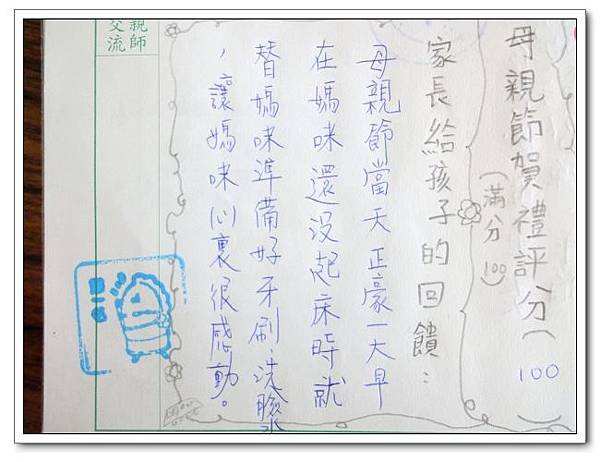 母親節賀禮評分(100)
(滿分100)
家長給孩子的回饋:
母親節當天正豪一大早
在媽咪還没起床時就
替媽咪準備好牙刷、洗臉水
，讓媽咪心裏很感動。
親師
交流